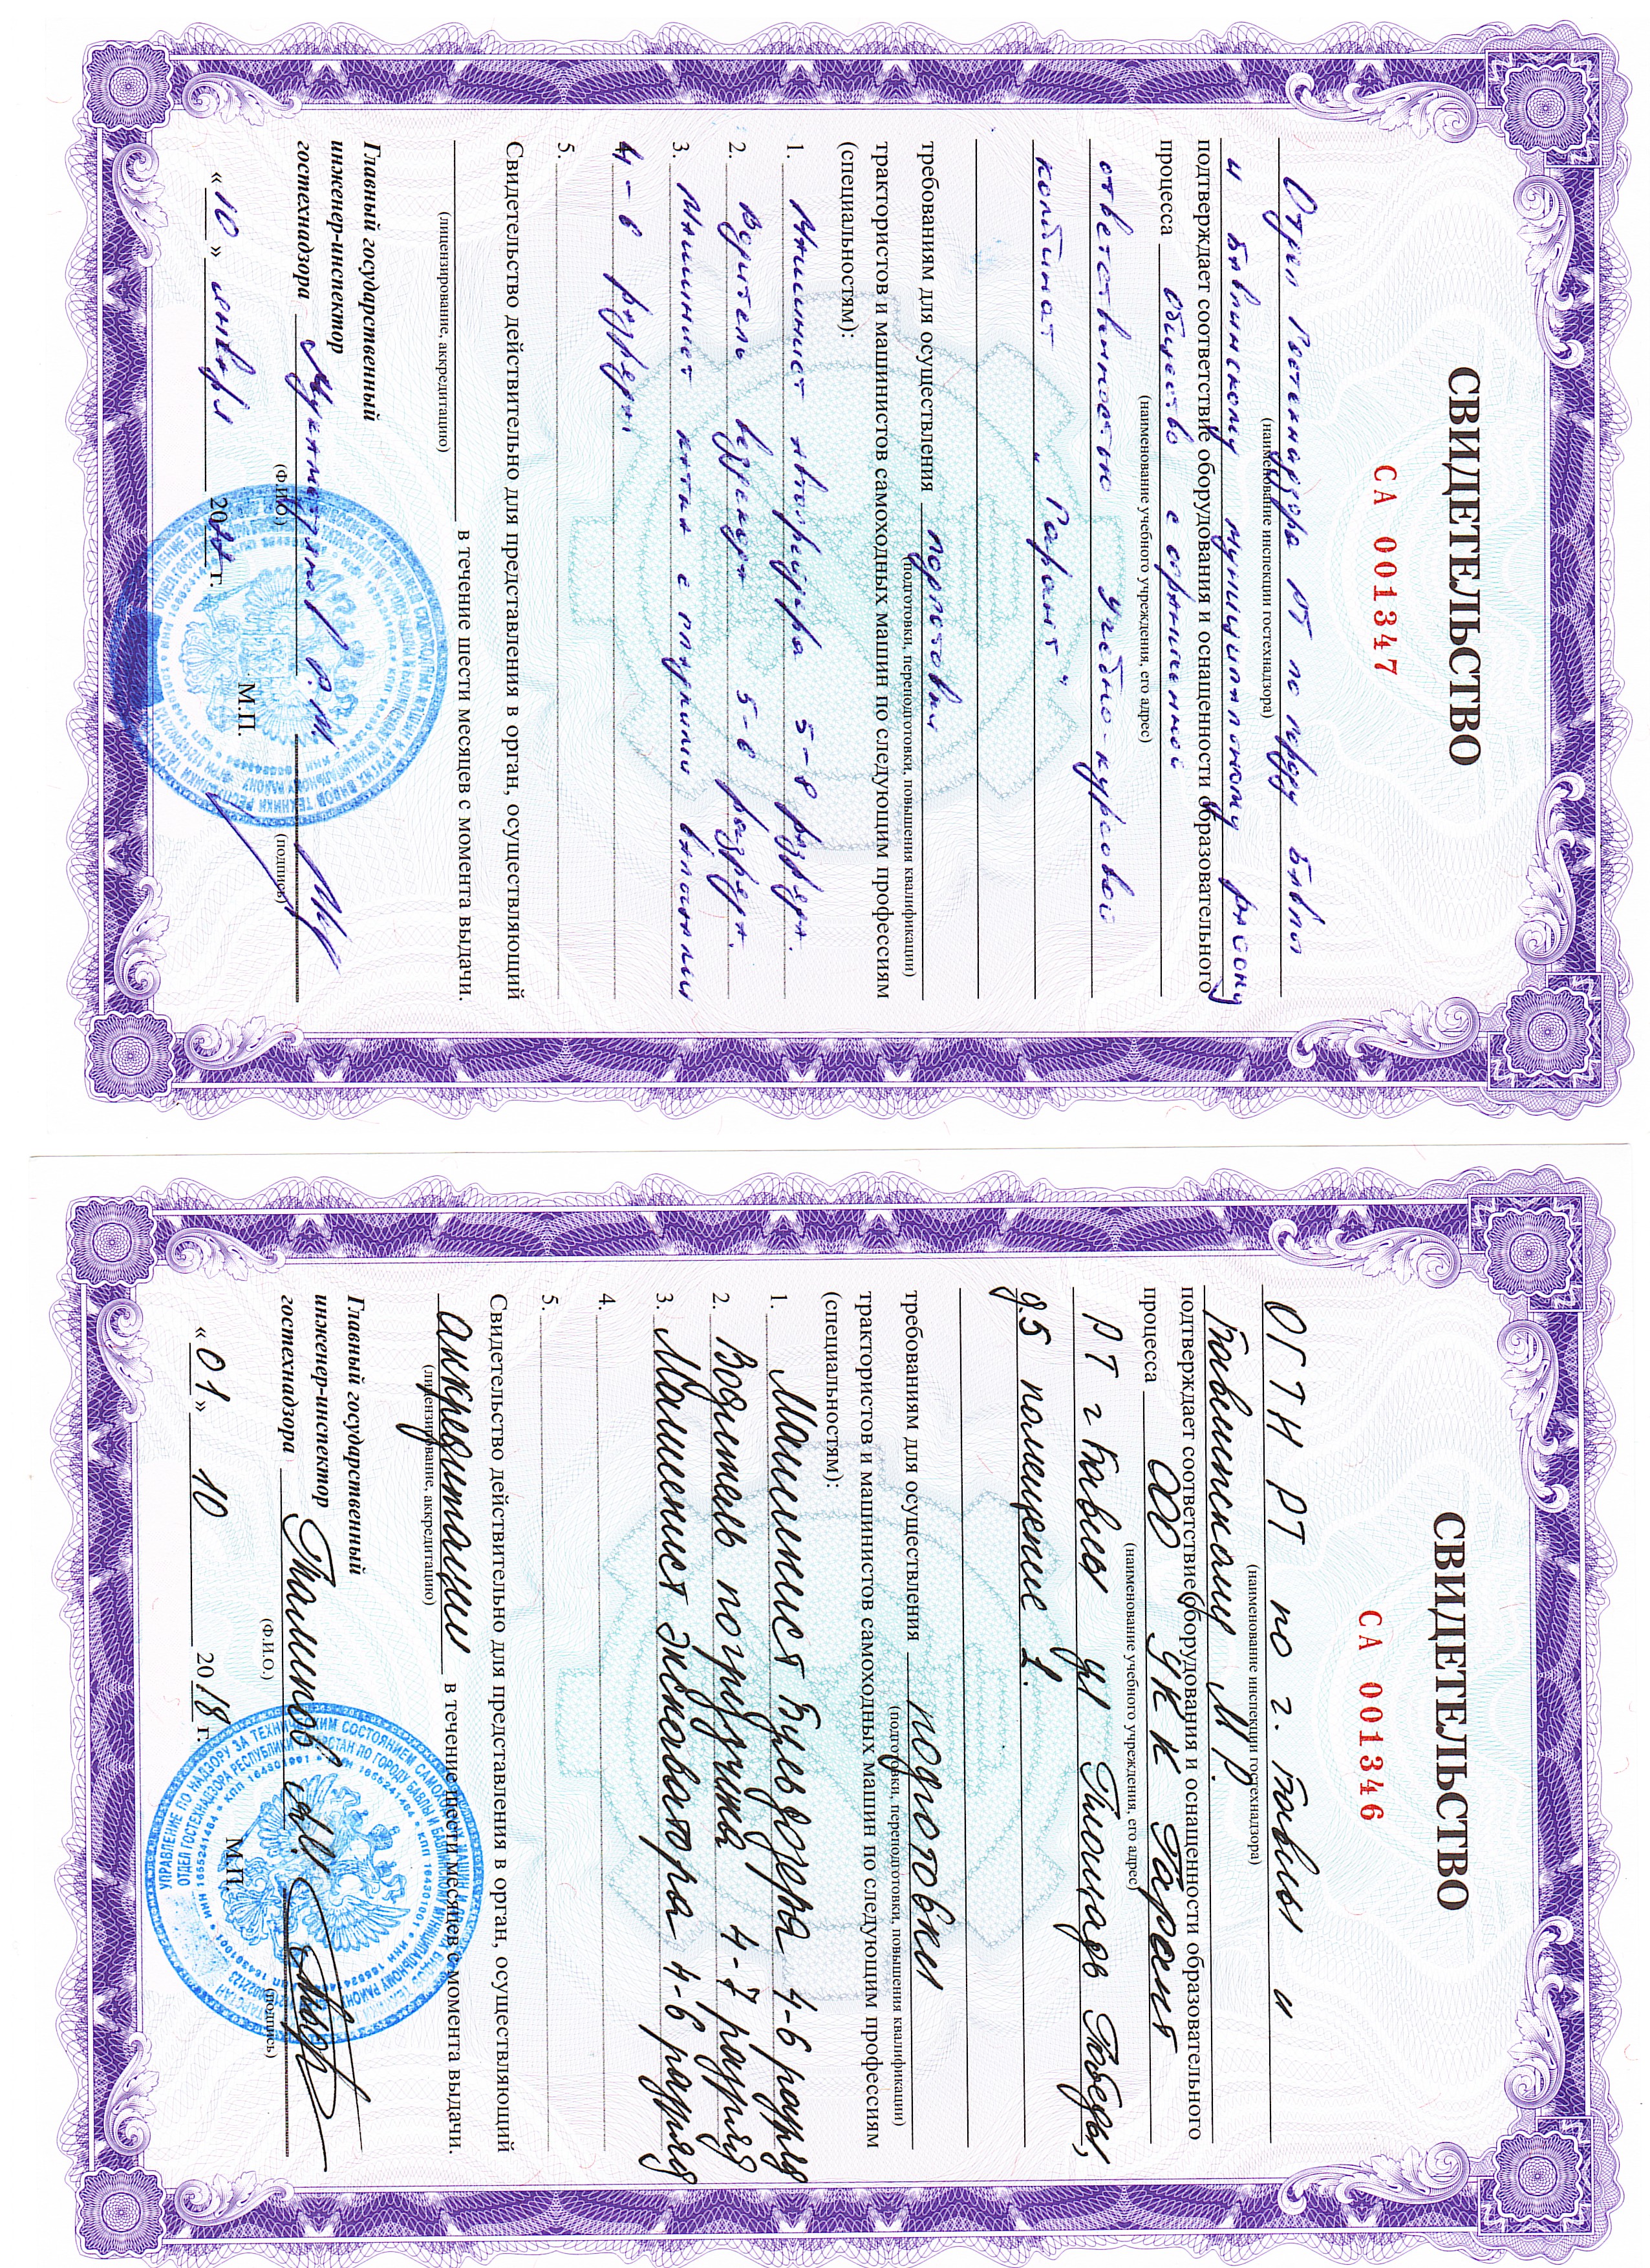 СВИДЕТЕЛЬСТВО
СА 001347
Отдел Гостехнадзора РТ по городу Бавлы
(наименование инспекции гостехнадзора)
и Бавлинскому муниципальному району
подтверждает соответствие оборудования и оснащенности образовательного
процесса Общество с ограниченной
(наименование учебного учреждения, его адрес)
ответственностью Учебно-курсовой
комбинат "Гарант"
требованиям для осуществления подготовки
(подготовки, переподготовки, повышения квалификации)
трактористов и машинистов самоходных машин по следующим профессиям
(специальностям):
1. Машинист автогрейдера 5-8 разряда.
2. Водитель вездехода 5-6 разряда.
3. Машинист катка с гладкими вальцами
4-6 разряд.
5.
Свидетельство действительно для представления в орган, осуществляющий
в течение шести месяцев с момента выдачи.
(лицензирование, аккредитацию)
Главный государственный
инженер-инспектор
гостехнадзора Р.М.
(Ф.И.О.) (подпись)
М.П.
«10» января 20 г.
СВИДЕТЕЛЬСТВО
СА 001346
ОГТН РТ по г. Бавлы и
(наименование инспекции гостехнадзора)
Бавлинскому МР
подтверждает соответствие оборудования и оснащенности образовательного
процесса ООО УКК Гарант
(наименование учебного учреждения, его адрес)
РТ г Бавлы ул Площадь Победы,
д.5 помещение 1.
требованиям для осуществления подготовки
(подготовки, переподготовки, повышения квалификации)
трактористов и машинистов самоходных машин по следующим профессиям
(специальностям):
1. Машинист бульдозера 4-6 разряд
2. Водитель погрузчика 4-7 разряд
3. Машинист экскаватора 4-6 разряд
4.
5.
Свидетельство действительно для представления в орган, осуществляющий
аккредитации в течение шести месяцев с момента выдачи.
(лицензирование, аккредитацию)
Главный государственный
инженер-инспектор
гостехнадзора
(Ф.И.О.) (подпись)
М.П.
«01» 10 2018 г.